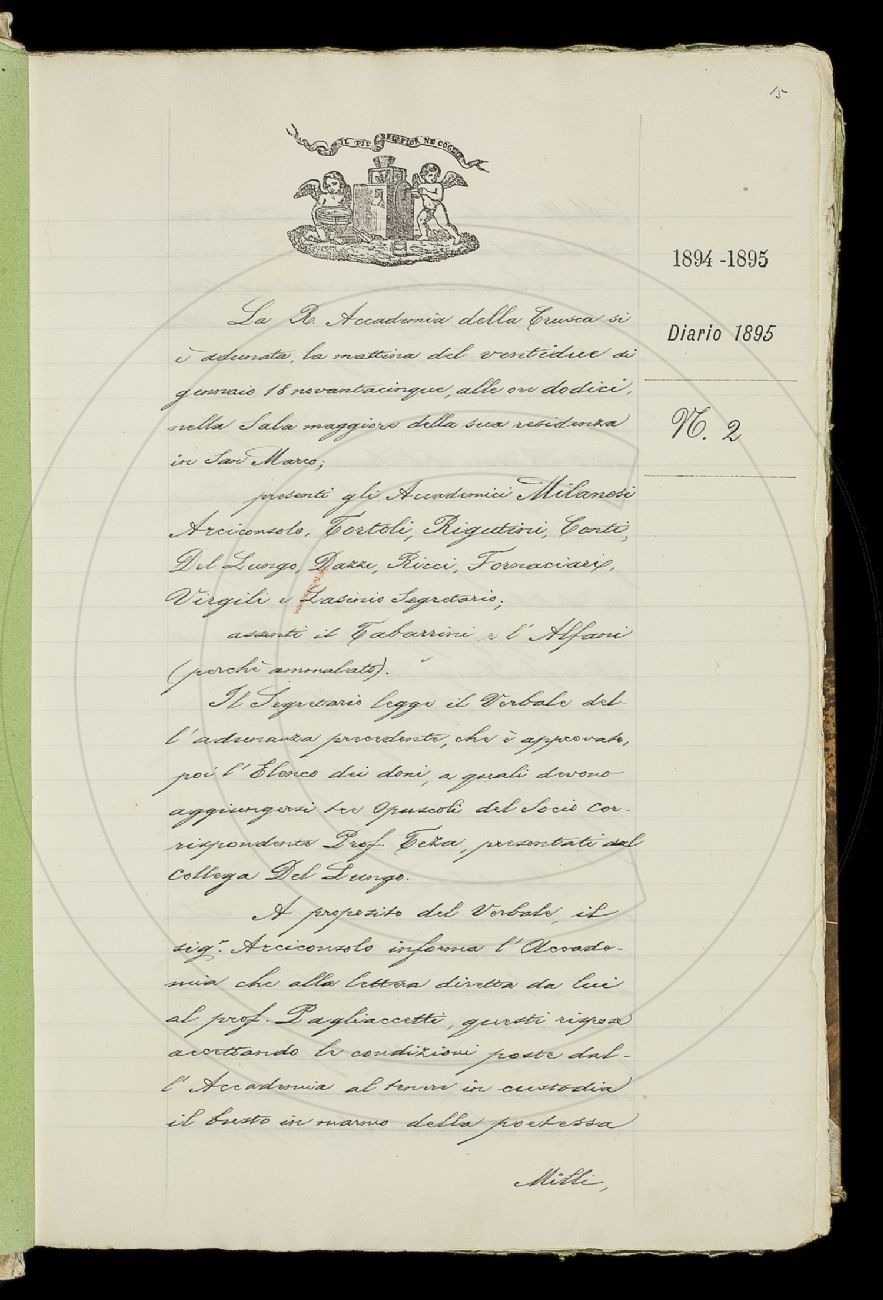 15
IL PIÙ BEL FIOR NE COGLIE
1894-1895
Diario 1895
N. 2
La R. Accademia della Crusca si
è adunata, la mattina del ventidue di
gennaio 18novantacinque, alle ore dodici,
nella Sala maggiore della sua residenza
in San Marco;
presenti gli Accademici Milanesi
Arciconsolo, Tortoli, Rigutini, Conti,
Del Lungo, Dazzi, Ricci, Fornaciari,
Virgili e Lasinio Segretario;
assenti il Tabarrini e l'Alfani
(perchè ammalato).
Il Segretario legge il Verbale del-
l'adunanza precedente, che è approvato,
poi l'Elenco dei doni, a quali devono
aggiungersi tre Opuscoli del Socio Cor-
rispondente Prof. Teza, presentati dal
Collega Del Lungo.
A proposito del Verbale, il
sig.r Arciconsolo informa l'Accade-
mia che alla lettera diretta da lui
al prof. Pagliaccetti, questi rispose
accettando le condizioni poste dal-
l'Accademia al tenere in custodia
il busto in marmo della poetessa
Milli,